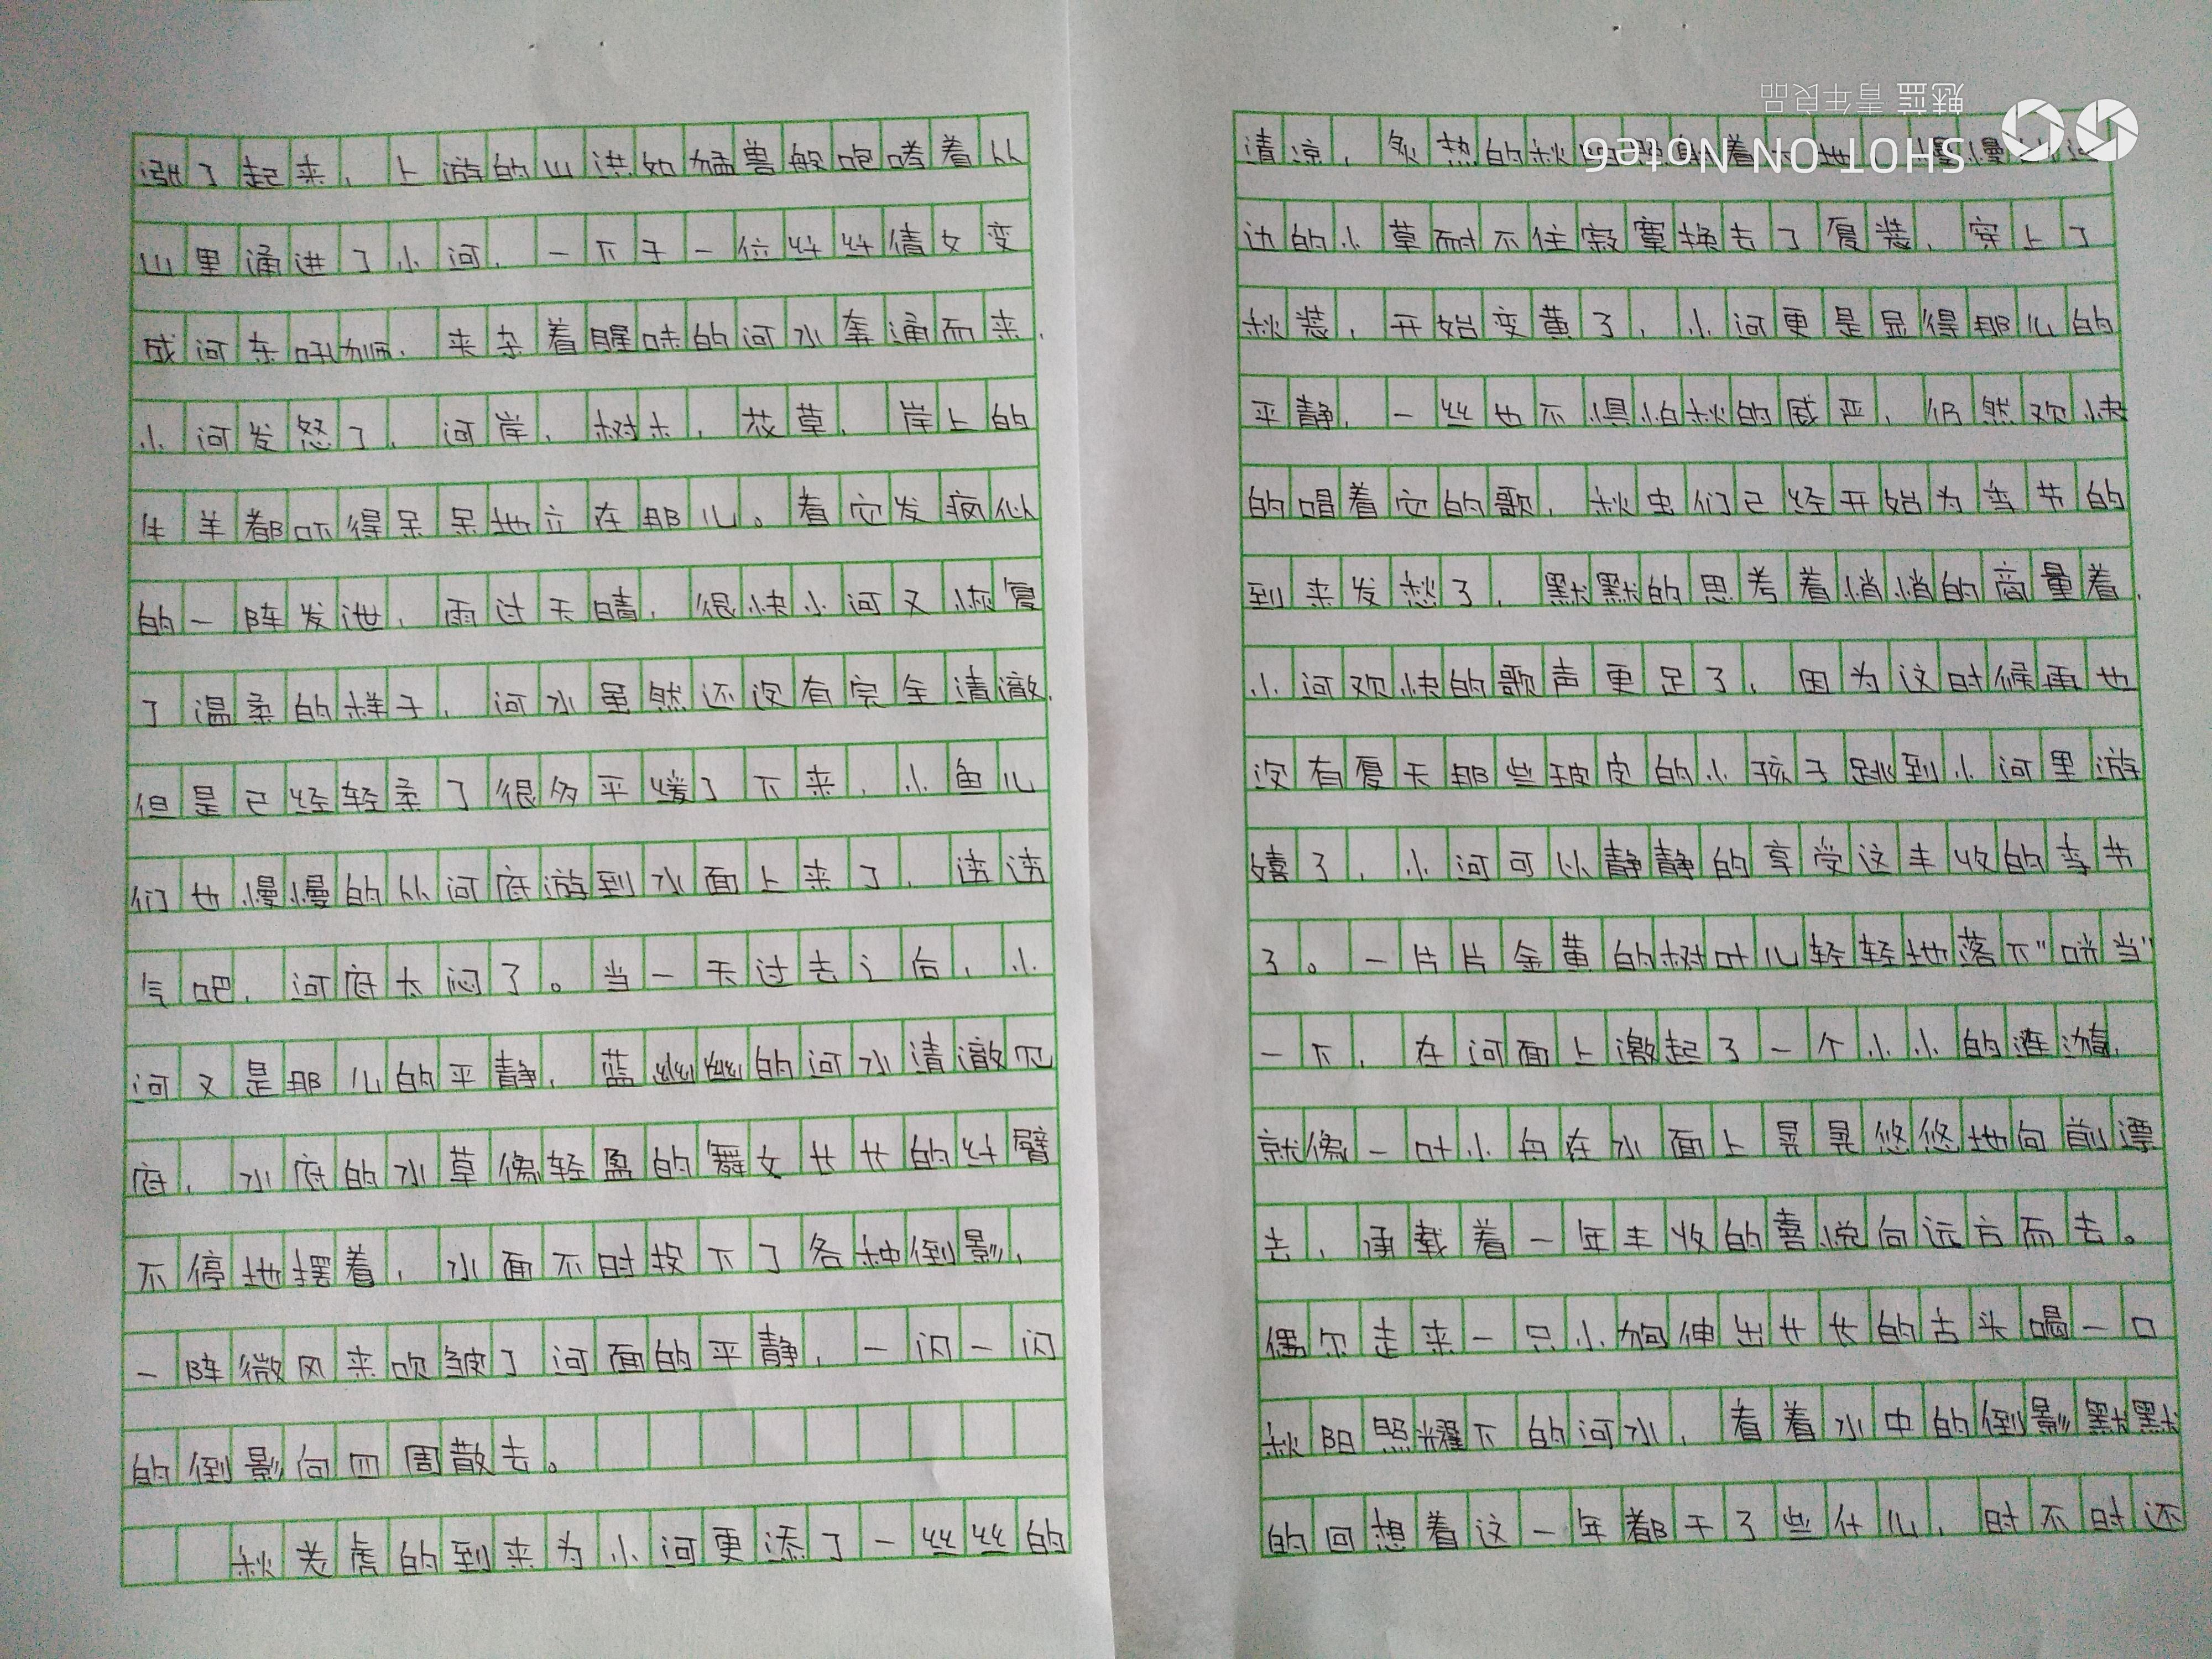 涨了起来，上游的山洪如猛兽般咆哮着从
山里涌进了小河，一下子一位纤纤倩女变
成河东吼狮，夹杂着腥味的河水奔涌而来，
小河发怒了，河岸，树木，花草，岸上的
牛羊都吓得呆呆地立在那儿。看它发疯似
的一阵发泄，雨过天晴，很快小河又恢复
了温柔的样子，河水虽然还没有完全清澈，
但是已经轻柔了很多平缓了下来，小鱼儿
们也慢慢的从河底游到水面上来了，透透
气吧，河底太闷了。当一天过去之后，小
河又是那儿的平静，蓝幽幽的河水清澈见
底，水底的水草像轻盈的舞女长长的纤臂
不停地摆着，水面不时投下了各种倒影，
一阵微风来吹皱了河面的平静，一闪一闪
的倒影向四周散去。
秋老虎的到来为小河更添了一丝丝的
清凉，炙热的秋阳 着大地 慢慢 河
边的小草耐不住寂寞换去了夏装，穿上了
秋装，开始变黄了，小河更是显得那儿的
平静，一丝也不惧怕秋的威严，仍然欢快
的唱着它的歌，秋虫们已经开始为季节的
到来发愁了，默默的思考着悄悄的商量着，
小河欢快的歌声更足了，因为这时候再也
没有夏天那些玻皮的小孩子跳到小河里游
嬉了，小河可以静静的享受这丰收的季节
了。一片片金黄的树叶儿轻轻地落下"咣当"
一下，在河面上激起了一个小小的涟漪，
就像一叶小舟在水面上晃晃悠悠地向前漂
去，承载着一年丰收的喜悦向远方而去。
偶尔走来一只小狗伸出长长的古头喝一口
秋阳照耀下的河水，看着水中的倒影默默
的回想着这一年都干了些什儿，时不时还
魅蓝 青年良品
SHOT ON Note6